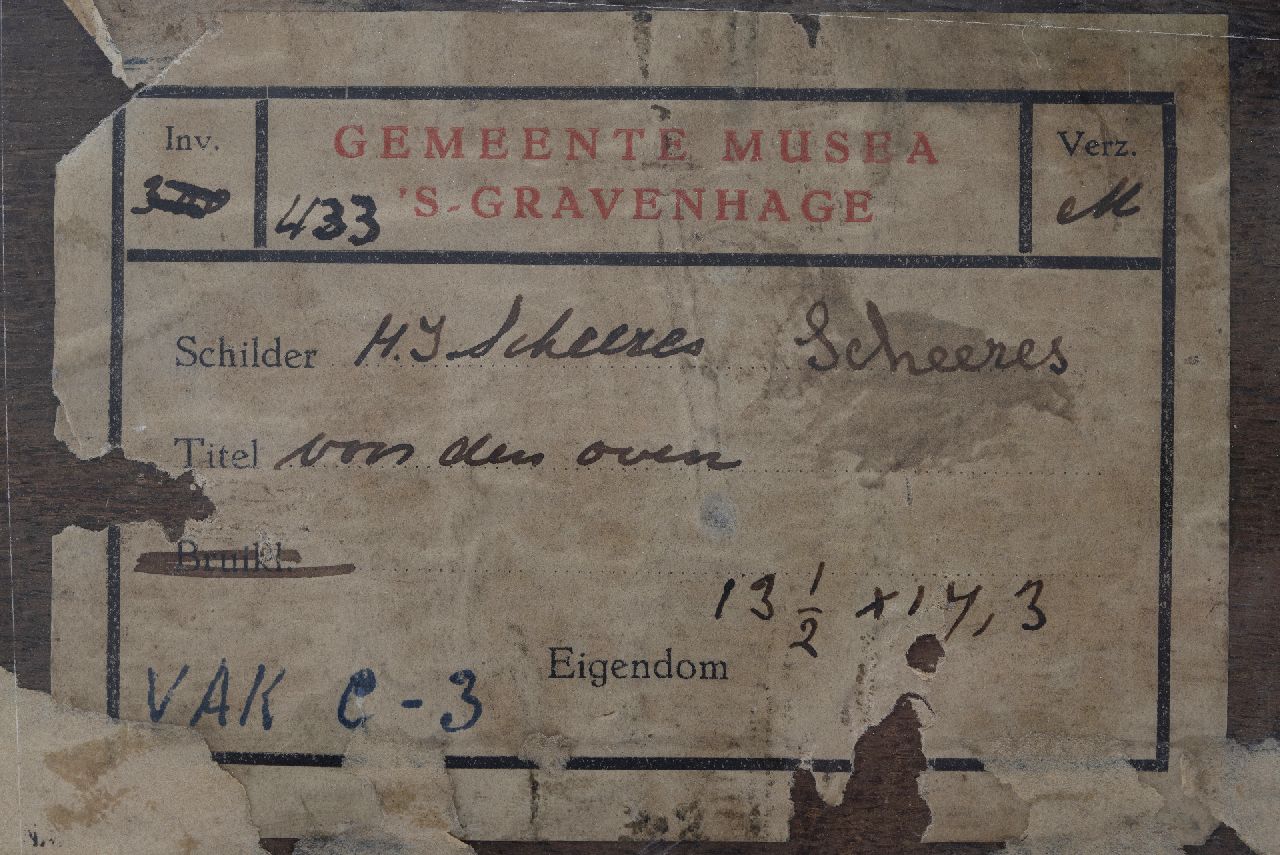 Inv. GEMEENTE MUSEA Verz.
433 'S-GRAVENHAGE M
Schilder H.J Scheeres Scheeres
Titel voor den oven
Bruikl.
13 1/2 x 17,3
Eigendom
VAK C-3